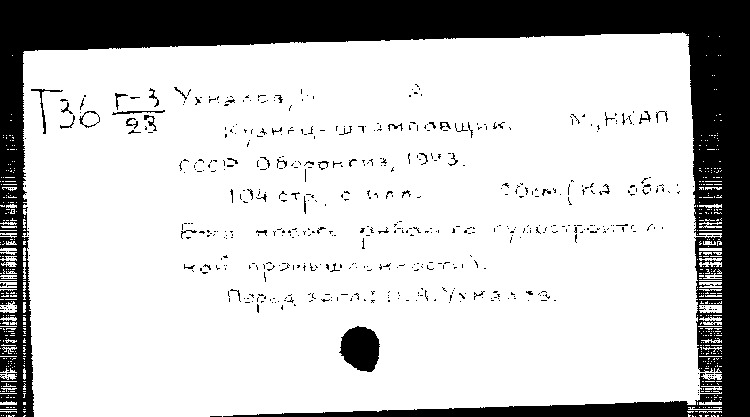 Т36 Г-3/23 Ухналев, А
Кузнец-штамповщик. М., НКАП
СССР Оборонгиз, 1943.
104 стр. с илл. 20см. (На обл.:
Б-ка рабочего судостроитель
ной промышленности).
Перед загл.: А. Ухналев.